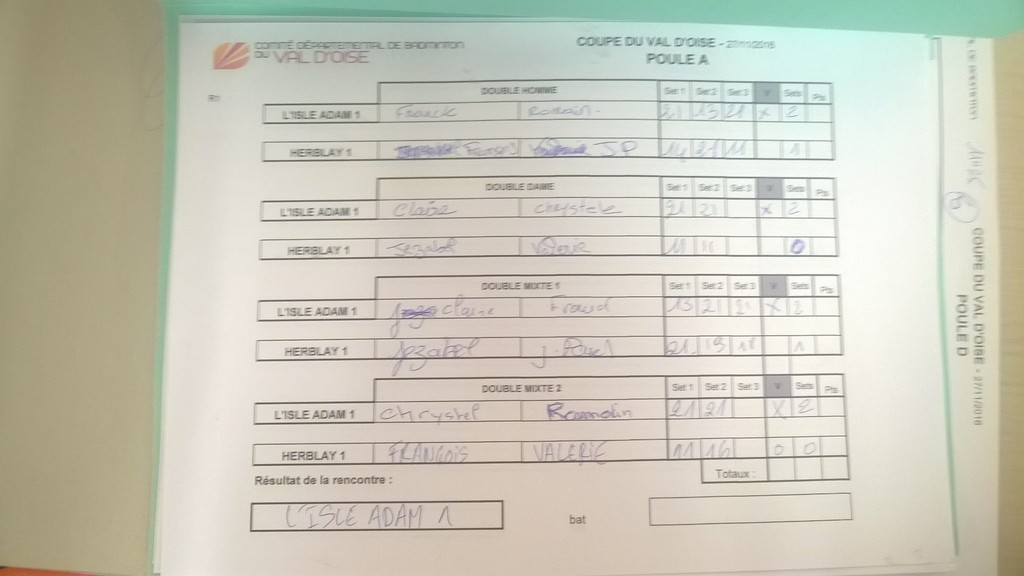 COMITÉ DÉPARTEMENTAL DE BADMINTON
DU VAL D'OISE
COUPE DU VAL D'OISE - 27/11/2016
POULE A
R1
DOUBLE HOMME Set 1 Set 2 Set 3 V Sets Pts
L'ISLE ADAM 1 Franck Romain 21 13 21 X 2
HERBLAY 1 JP 14 21 11 1
DOUBLE DAME Set 1 Set 2 Set 3 V Sets Pts
L'ISLE ADAM 1 Claire Chrystele 21 21 X 2
HERBLAY 1 Jezabel Valerie 11 11 0
DOUBLE MIXTE 1 Set 1 Set 2 Set 3 V Sets Pts
L'ISLE ADAM 1 Claire 21 21 X 2
HERBLAY 1 Jezabel 21 19 18 1
DOUBLE MIXTE 2 Set 1 Set 2 Set 3 V Sets Pts
L'ISLE ADAM 1 Chrystel 21 21 X 2
HERBLAY 1 FRANCOIS VALERIE 11 16 0 0
Totaux :
Résultat de la rencontre :
L'ISLE ADAM 1 bat
COUPE DU VAL D'OISE - 27/11/2016
POULE D